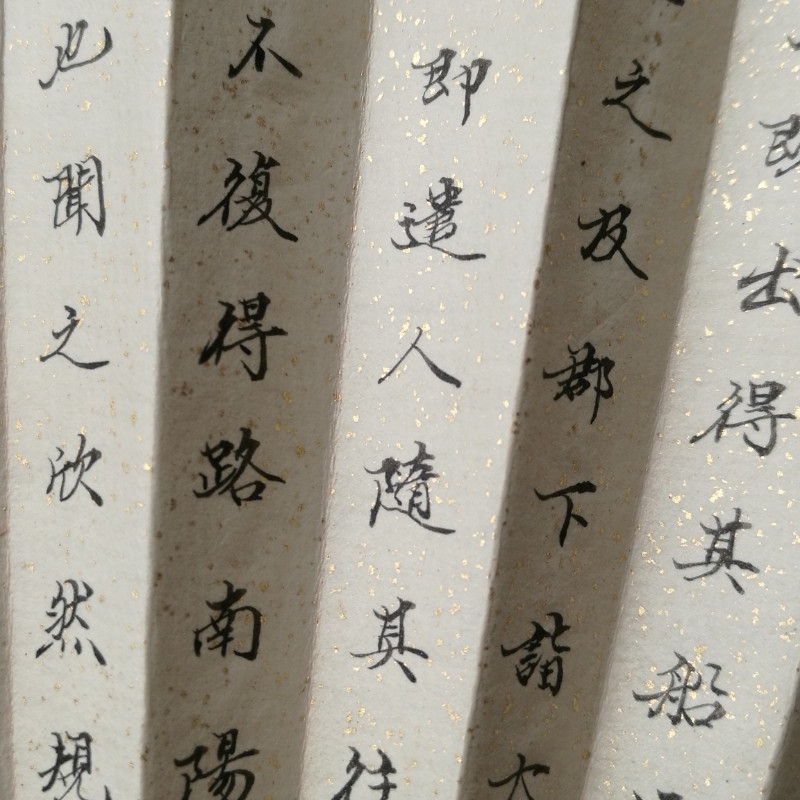 出得其船
之及郡下詣
即遣人隨其往
不復得路南陽
也聞之欣然規